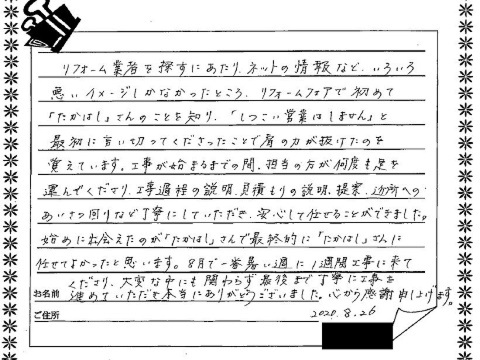 リフォーム業者を探すにあたり、ネットの情報など、いろいろ
悪いイメージしかなかったところ、リフォームフェアで初めて
「たかはし」さんのことを知り、「しつこい営業はしません」と
最初に言い切ってくださったことで肩の力が抜けたのを
覚えています。工事が始まるまでの間、担当の方が何度も足を
運んでくださり、工事過程の説明、見積もりの説明、提案、近所への
あいさつ回りなど丁寧にしていただき、安心して任せることができました。
始めに出会えたのが「たかはし」さんで最終的に「たかはし」さんに
任せてよかったと思います。8月で一番暑い週に1週間工事に来て
くださり、大変な中にも関わらず最後まで丁寧に工事を
お名前 進めていただき本当にありがとうございました。心から感謝申し上げます。
ご住所 2020.8.26